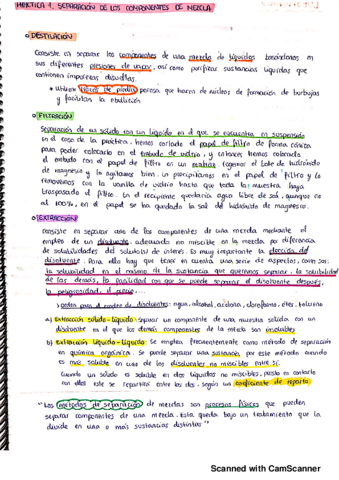 PRÁCTICA 1. SEPARACIÓN DE LOS COMPONENTES DE MEZCLA
DESTILACIÓN
Consiste en separar los componentes de una mezcla de líquidos basándonos en
sus diferentes presiones de vapor, así como purificar sustancias líquidas que
contienen impurezas disueltas.
* Utilizar trozos de plato poroso que hacen de núcleos de formación de burbujas
y facilitan la ebullición
FILTRACIÓN
Separación de un sólido con un líquido en el que se encuentra en suspensión
En el caso de la práctica, hemos cortado el papel de filtro de forma cónica
para poder colocarlo en el embudo de vidrio, y entonces hemos colocado
el embudo con el papel de filtro en un matraz. Cogemos el bote de hidróxido
de magnesio y lo agitamos bien. Lo precipitamos en el papel de filtro y lo
removemos con la varilla de vidrio hasta que toda la muestra haya
traspasado el filtro. En el recipiente quedaría agua libre de sal, aunque no
al 100%, en el papel se ha quedado la sal de hidróxido de magnesio.
EXTRACCIÓN
consiste en separar uno de los componentes de una mezcla mediante el
empleo de un disolvente adecuado no miscible en la mezcla por diferencia
de solubilidades del soluto/s de interés. Es muy importante la elección de
disolvente. Para ello hay que tener en cuenta una serie de aspectos, como son:
la solubilidad en el mismo de la sustancia que queremos separar, la solubilidad
de las demás, la facilidad con que se puede separar el disolvente después,
la peligrosidad, el precio...
orden para el empleo de disolventes: agua, alcohol, acetona, cloroformo, éter, tolueno
a) Extracción sólido-líquido: separar un componente de una muestra sólida con un
disolvente en el que los demás componentes de la mezcla son insolubles
b) Extracción líquido-líquido: Se emplea frecuentemente como método de separación
en química orgánica. Se puede separar una sustancia por este método cuando
es más soluble en uno de los disolventes no miscibles entre sí.
Cuando un sólido es soluble en dos líquidos no miscibles, puesto en contacto
con ellos este se repartirá entre los dos, según un coeficiente de reparto
"Los métodos de separación de mezclas son procesos físicos que pueden
separar componentes de una mezcla. Esta queda bajo un tratamiento que la
divide en una o más sustancias distintas"
Scanned with CamScanner